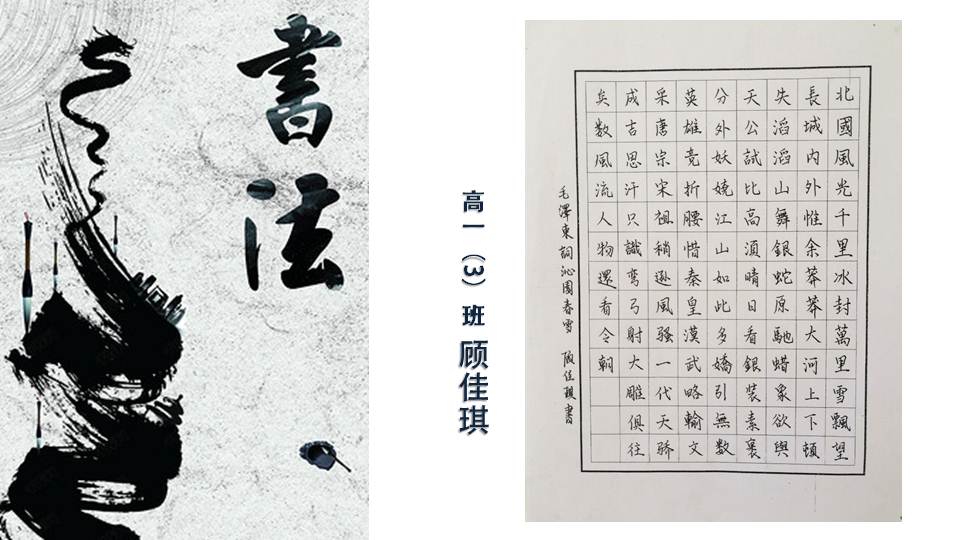 書法
高一（3）班 顾佳琪
北國風光千里冰封萬里雪飄望
長城内外惟余莽莽大河上下頓
失滔滔山舞銀蛇原馳蜡象欲與
天公試比高須晴日看銀裝素裹
分外妖嬈江山如此多嬌引無數
英雄竞折腰惜秦皇漢武略輸文
采唐宗宋祖稍遜風骚一代天骄
成吉思汗只識弯弓射大雕俱往
矣數風流人物還看今朝
毛澤東詞沁園春雪 顾佳琪書